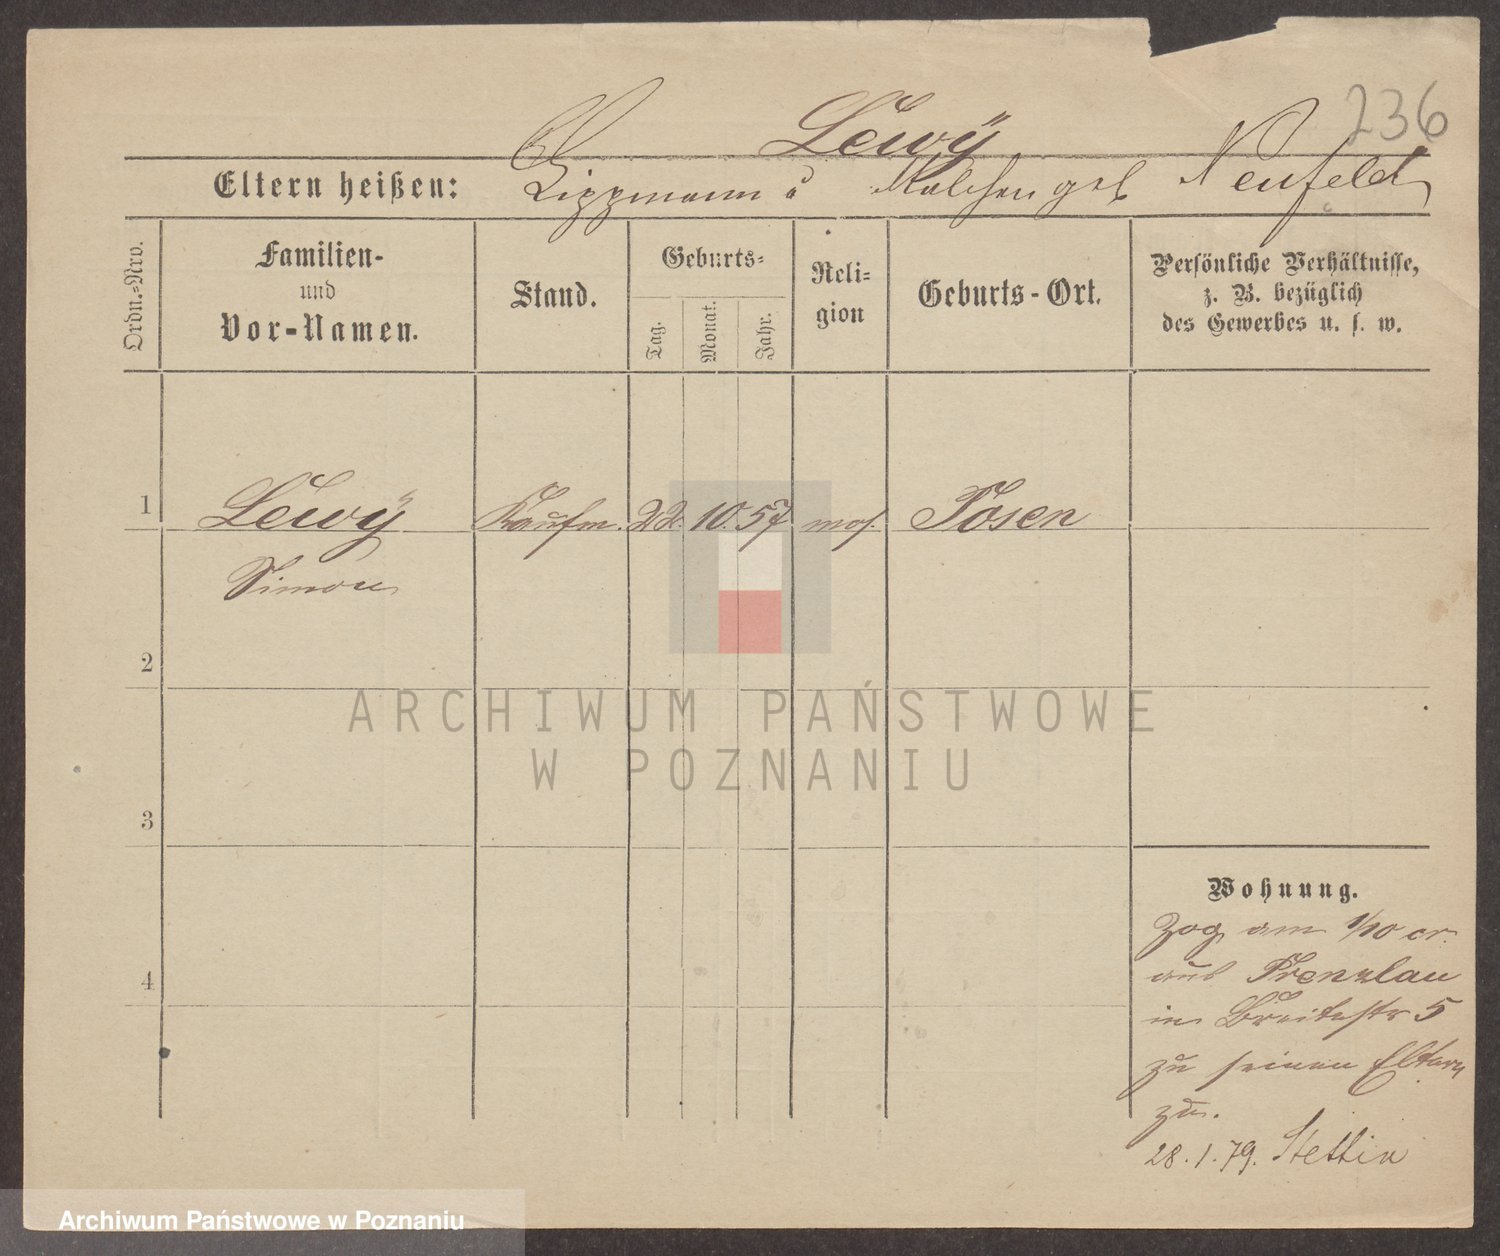 236
Lewÿ
Eltern heißen: Lippmann u Malchen geb Neufeld
Ordn.-Nro.
Familien-
und
Vor-Namen.
Stand.
Geburts-
Tag.
Monat.
Jahr.
Reli-
gion
Geburts-Ort.
Persönliche Verhältnisse,
z. B. bezüglich
des Gewerbes u. s. w.
1 Lewÿ Kaufm. 22. 10. 57 mos. Posen
Simon
2
3
4
Wohnung.
Zog am 1/10 cr.
aus Prenzlau
in Breitestr 5
zu seinen Eltern
zu.
28.1.79. Stettin
ARCHIWUM PAŃSTWOWE
W POZNANIU
Archiwum Państwowe w Poznaniu